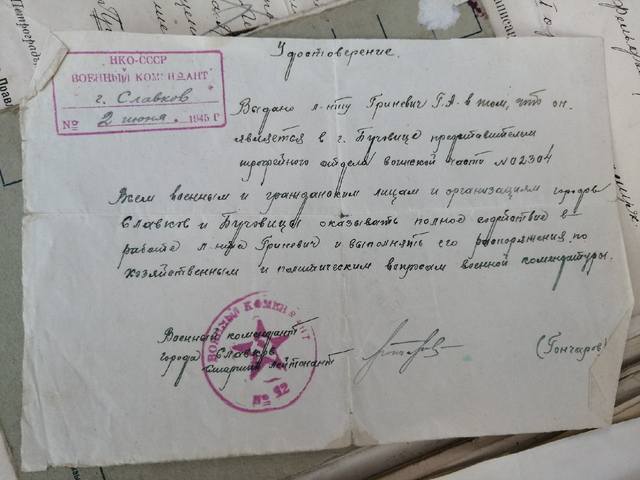 НКО-СССР
ВОЕННЫЙ КОМЕНДАНТ
г. Славков
№ 2 июня. 1945 г
Удостоверение.
Выдано л-нту Гриневич Г.А. в том, что он
является в г. Бучовице представителем
трофейного отдела воинской части №02304
Всем военным и гражданским лицам и организациям городов
Славков и Бучовицы оказывать полное содействие в
работе л-нта Гриневич и выполнять его распоряжения по
хозяйственным и политическим вопросам военной комендатуры.
Военный комендант
города Славков
Старший лейтенант
(Гончаров)
ВОЕННЫЙ КОМЕНДАНТ
№ 12
Петроградъ